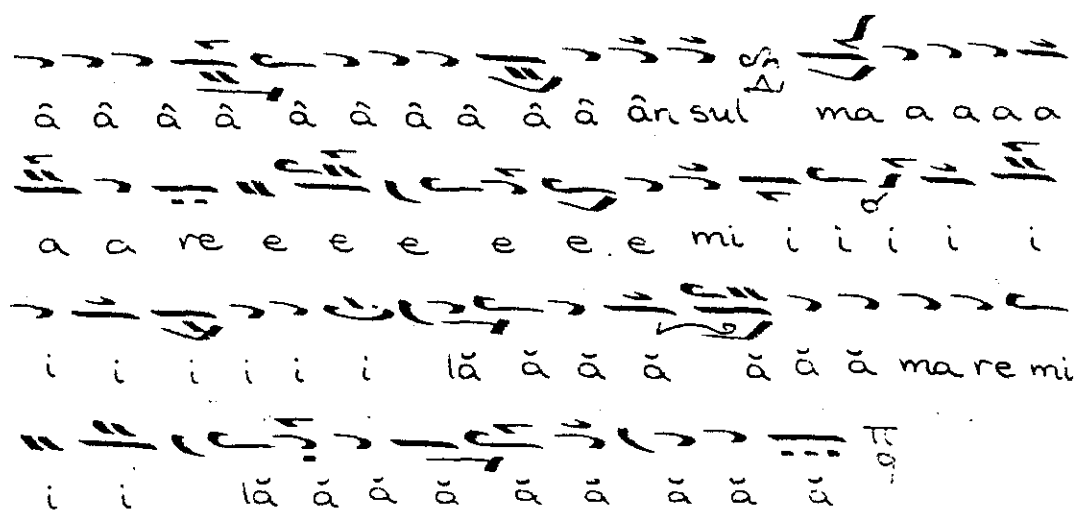 â â â â â â â â â â ân sul ma a a a a
a a re e e e e e e mi i i i i i
i i i i i i lă ă ă ă ă ă ă ma re mi
i i lă ă ă ă ă ă ă ă ă